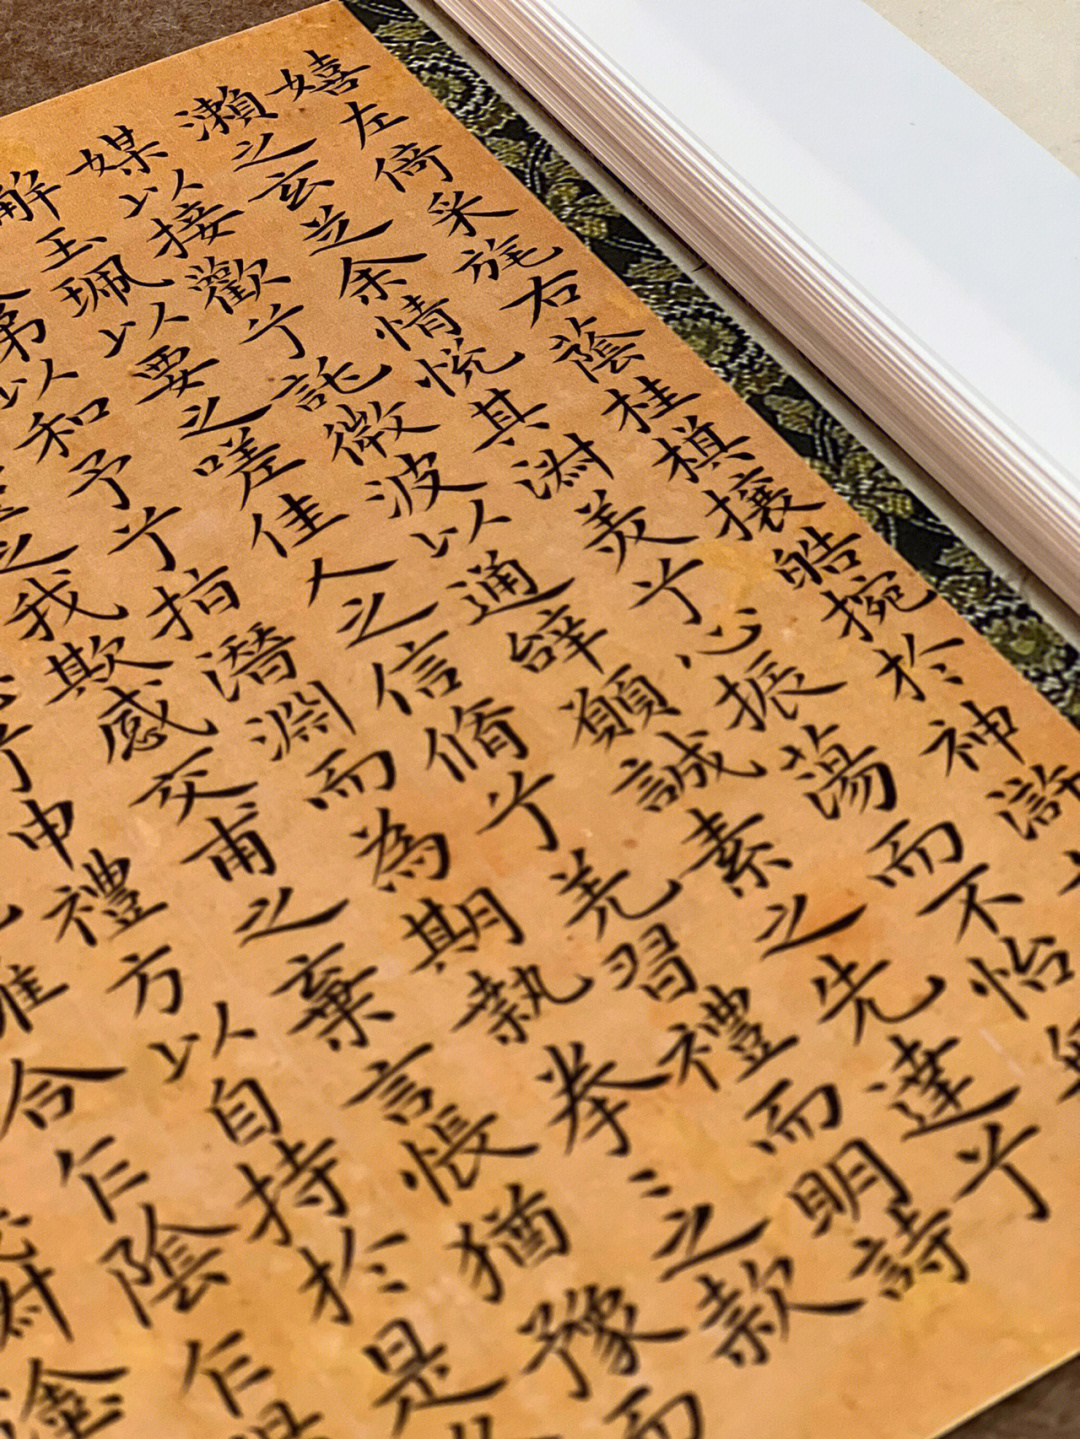 嬉左倚采旄右蔭桂棋攘皓捥於神滸
瀨之玄芝余情悅其淑美兮心振蕩而不怡
媒以接歡兮託微波以通辝願誠素之先達兮
解玉珮以要之嗟佳人之信脩兮羌習禮而明詩
以和予兮指潛淵而為期執拳〻之款
之我欺感交甫之棄言悵猶豫而
兮申禮方以自持於是
離合乍陰乍
塗